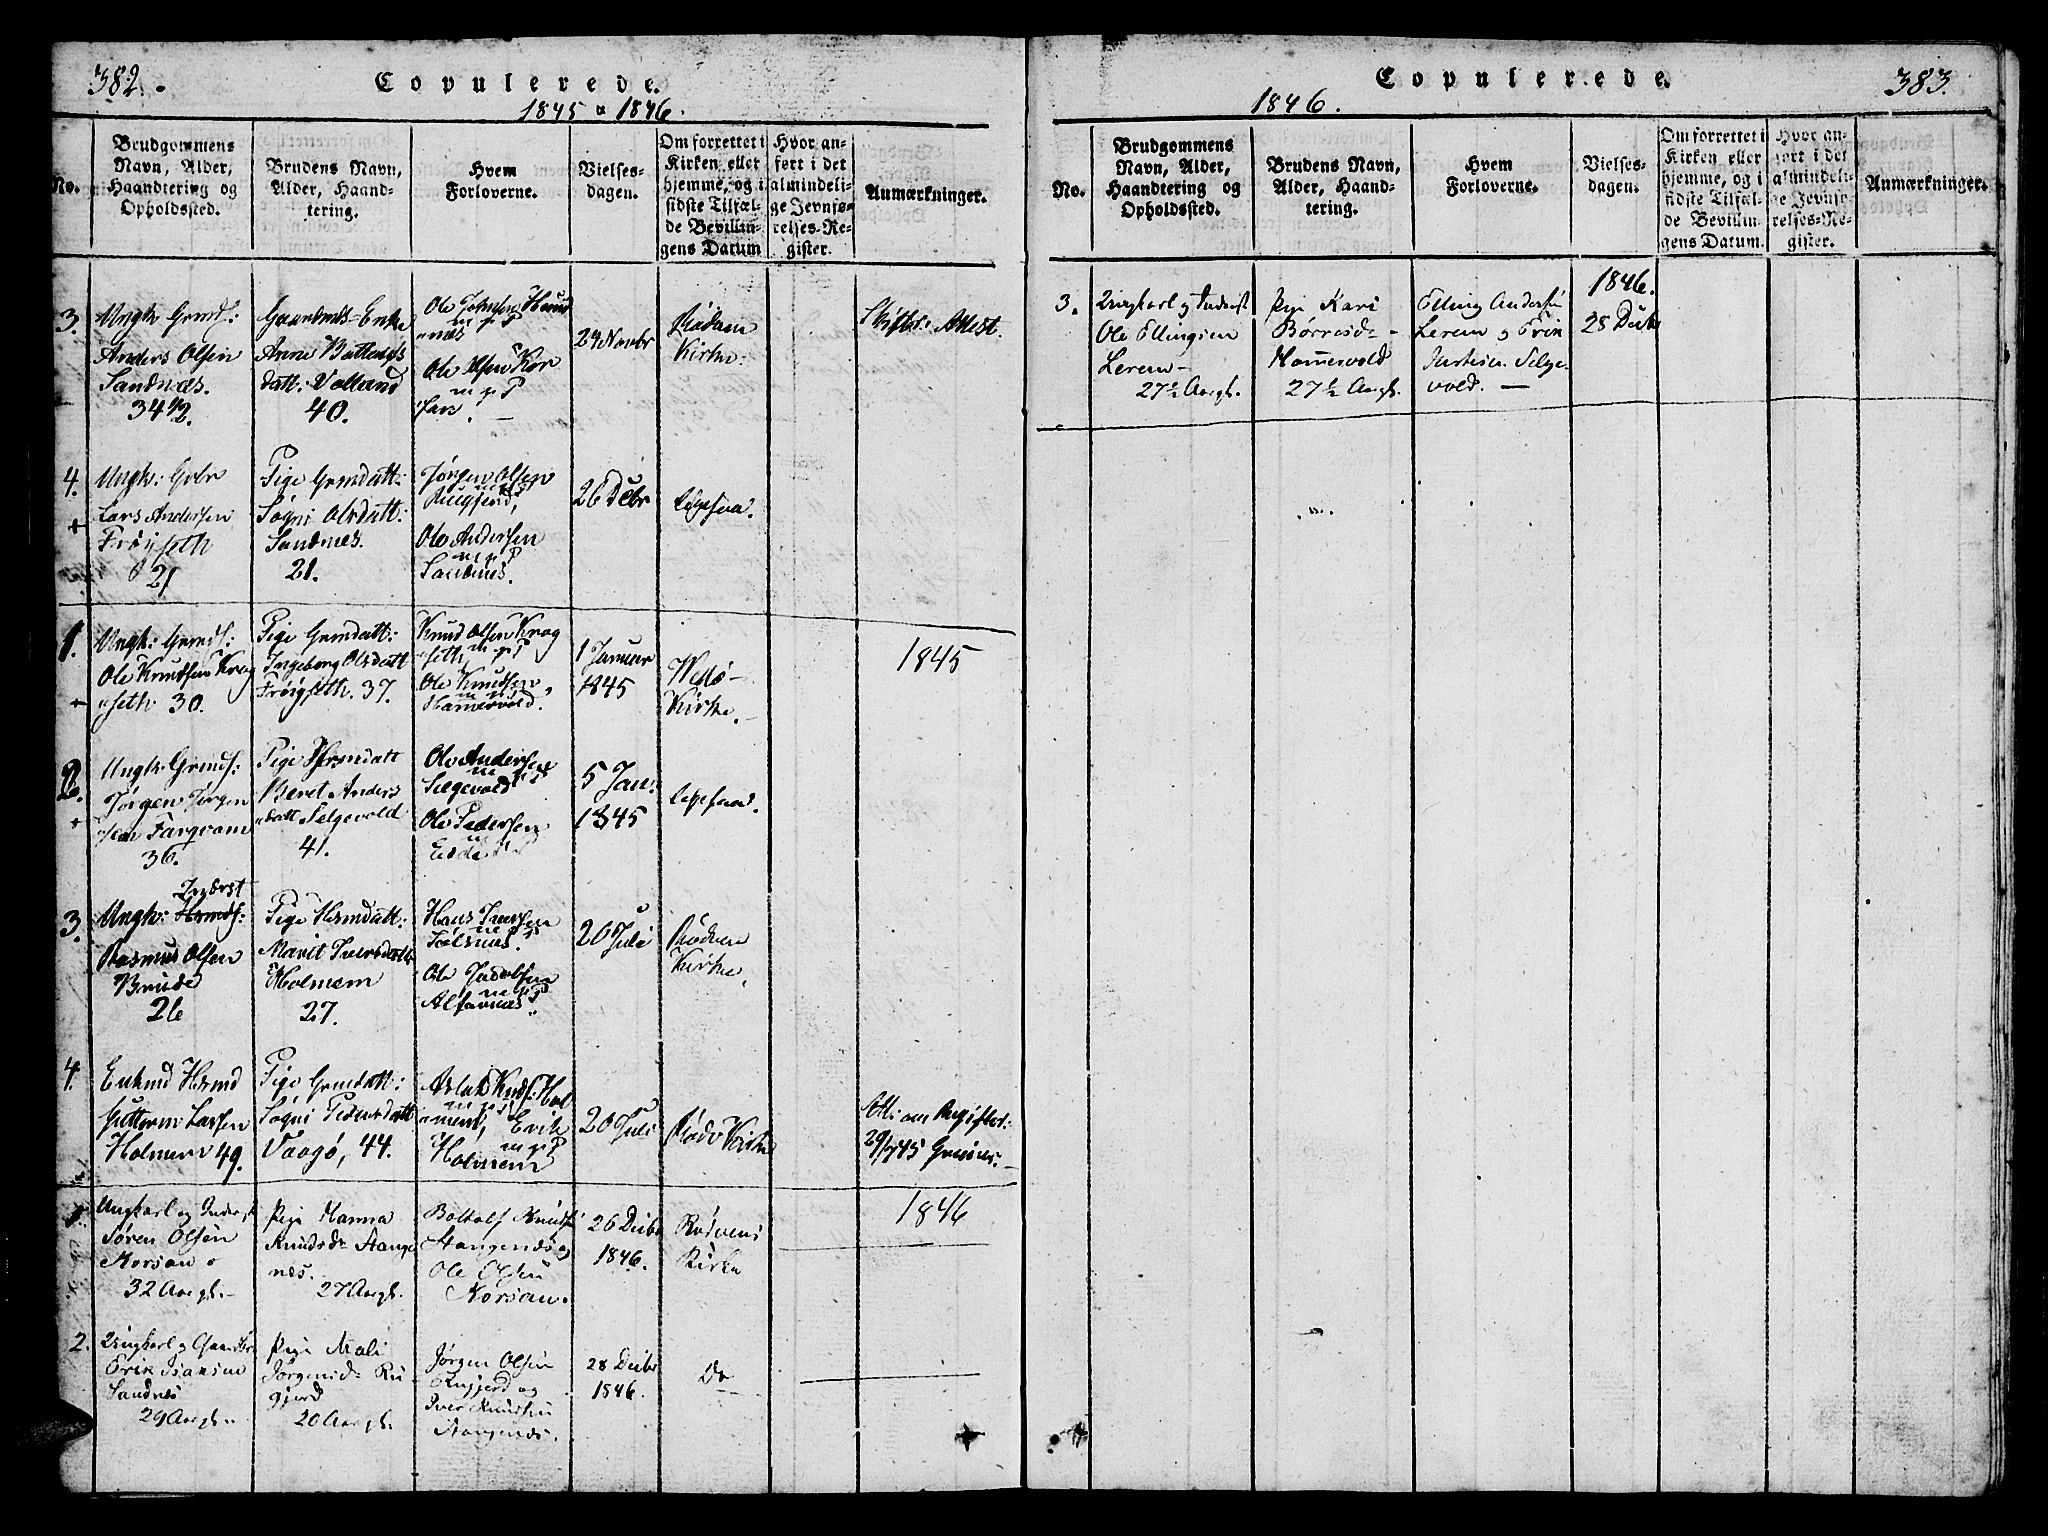 382.
Copulerede.
1845 & 1846.
No.
Brudgommens
Navn, Alder,
Haandtering og
Opholdssted.
Brudens Navn,
Alder, Haand-
tering.
Hvem
Forloverne.
Vielses-
dagen.
Om forrettet i
Kirken eller
hjemme, og i
sidste Tilfæl-
de Bevillin-
gens Datum
Hvor an-
ført i det
almindeli-
ge Jevnfø-
relses-Re-
gister.
Anmærkninger.
3.
Ungk: Grmds:
Anders Olsen
Sandnæs.
34 1/2.
Gaardmds-Enke
Anne
datt: Volland
40.
Ole Johnsen
næs
Ole Olsen Kor
san.
24 Novbr
Rødven
Kirke.
Skifter. Attest.
4.
+
Ungk: Gbr
Lars Andersen
Frøyseth
21
Pige Grmdatt:
Søgni Olsdatt:
Sandnæs.
21.
Jørgen Olsen
Rugjerd,
Ole Andersen
Sandnæs.
26 Decbr
1.
+
Ungk: Grmds:
Ole Knudsen Krog
seth 30.
Pige Grmdatt:
Ingeborg Olsdatt
Frøigseth. 37.
Knud Olsen Krog
seth
Ole Knudsen
Hamervold.
1 Januar
1845
Weøe
Kirke.
1845
2.
+
Ungk. Grmds:
Jørgen Jørgen
sen Farqvam
36.
Pige Hsmdatt
Beret Anders
datt Selgevold
41.
Ole Andersen
Selgevold
Ole Pedersen
5 Jan:
1845
3.
Inderst
Ungk: Hsmds:
Rasmus Olsen
Brude
26
Pige Hsmdatt:
Marit Iversdatt
Holmem
27.
Hans Iversen
Ole Jacobsen
Alfarnæs.
20 Juli
Rødven
Kirke
4.
Enkmd Hsmd
Guttorm Larsen
Holmem 49.
Pige Grmdatt:
Søgni Pedersdatt
Vaagø, 44.
Aslak Knds: Hol
mem, Erik
Holmem
20 Juli
Rødv Kirke
29/7 45
1.
Ungkarl og Inderst
Søren Olsen
Korsan
32 Aargl.
Pige Hanna
Knudsdr Stange
næs.
27 Aargl.
Knuds
Stangenæs og
Ole Olsen
Korsan.
26 Decbr
1846.
Rødvens
Kirke
1846
2.
Ungkarl og
Erik Isaksen
Sandnæs
29 Aargl.
Pige Mali
Jørgensdr Ru-
gjerd
20 Aargl.
Jørgen Olsen
Rugjerd og
Iver Knudsen
Stangenæs.
28 Decbr
1846.
Do
383.
Copulerede.
1846.
No.
Brudgommens
Navn, Alder,
Haandtering og
Opholdssted.
Brudens Navn,
Alder, Haand-
tering.
Hvem
Forloverne.
Vielses-
dagen.
Om forrettet i
Kirken eller
hjemme, og i
sidste Tilfæl-
de Bevillin-
gens Datum.
Hvor an-
ført i det
almindeli-
ge Jevnfø-
relses-Re-
gister.
Anmærkninger.
3.
Ungkarl og Inderst
Ole Ellingsen
Lerem
27 1/2 Aargl.
Pige Kari
Børresdr
Hammervold
27 1/2 Aargl.
Elling Andersen
Lerem og Erik
Selge-
vold.
1846.
28 Decbr